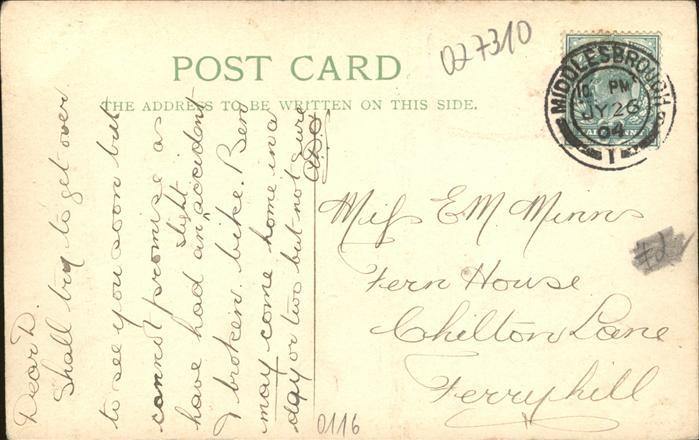 POST CARD
THE ADDRESS TO BE WRITTEN ON THIS SIDE.
027310
MIDDLESBROUGH
10 PM
JY 26
04
1
Dear D.
Shall try to get over
to see you soon but
cannot promise as
have had an slight accident
& broken bike. Ben
may come home in a
day or two but not sure
Miss E M Minns
Fern House
Chilton Lane
Ferryhill
0116